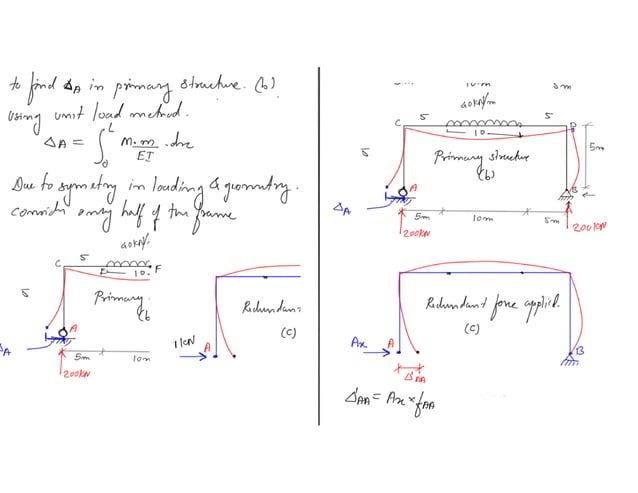 to find ΔA in primary structure. (b)
using unit load method.
ΔA = ∫₀ᴸ M.m/EI .dx
Due to symetry in loading & geometry.
consider only half of the frame
40kN/.
C 5 E 10. F
5
Primary.
(b
A
ΔA
5m 10m
200kN
Redundan
(c)
1kN A
10m 5m
40kN/m
C 5 10 5 D
5
5m
Primary structure
(b)
A B
ΔA
5m 10m 5m
200kN 200kN
Redundant force applied.
(c)
Ax A B
Δ'AA
Δ'AA = Ax × fAA